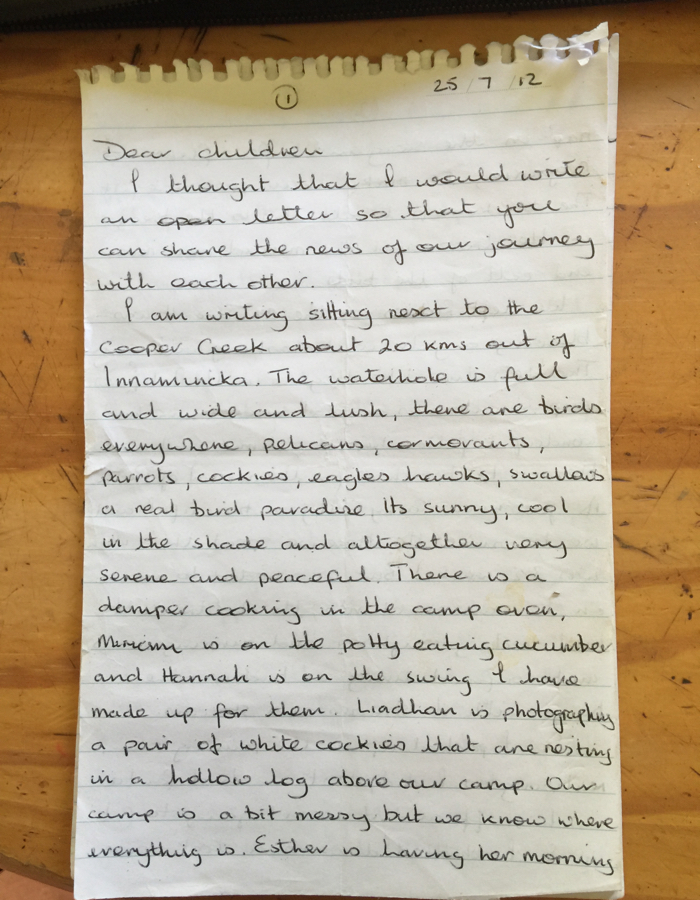 25 / 7 / 12
1
Dear children
I thought that I would write
an open letter so that you
can share the news of our journey
with each other.
I am writing sitting next to the
Cooper Creek about 20 kms out of
Innamincka. The waterhole is full
and wide and lush, there are birds
everywhere, pelicans, cormorants,
parrots, cockies, eagles hawks, swallows
a real bird paradise. Its sunny, cool
in the shade and altogether very
serene and peaceful. There is a
damper cooking in the camp oven,
Miriam is on the potty eating cucumber
and Hannah is on the swing I have
made up for them. Liadhan is photographing
a pair of white cockies that are nesting
in a hollow log above our camp. Our
camp is a bit messy but we know where
everything is. Esther is having her morning